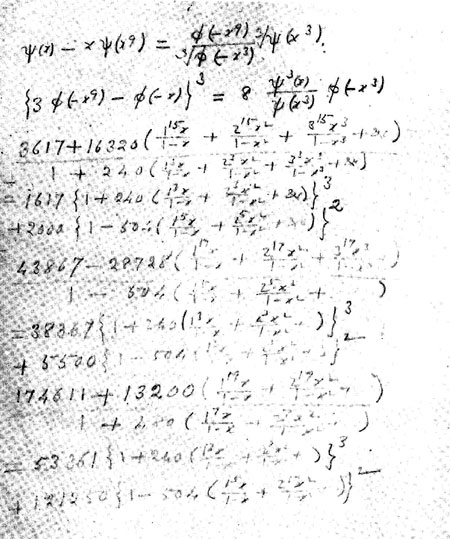 ψ(x) − xψ(x⁹) = φ(−x⁹)/∛φ(−x³) ∛ψ(x³).
{3φ(−x⁹) − φ(−x)}³ = 8 ψ³(x)/ψ(x³) φ(−x³)
3617+16320(1¹⁵x/1−x + 2¹⁵x²/1−x² + 3¹⁵x³/1−x³ + &c)
1 + 240(1³x/1−x + 2³x²/1−x² + 3³x³/1−x³ + &c)
= 1617{1+240(1³x/1−x + 2³x²/1−x² + &c)}³
+2000{1−504(1⁵x/1−x + 2⁵x²/1−x² + &c)}²
43867−28728(1¹⁷x/1−x + 2¹⁷x²/1−x² + 3¹⁷x³/1−x³ )
1 − 504(1⁵x/1−x + 2⁵x²/1−x² + )
=38367{1+240(1³x/1−x + 2³x²/1−x² + )}³
+ 5500{1−504 }²
174611+13200(1¹⁹x/1−x + 2¹⁹x²/1−x² + )
1 + 480(1⁷x/1−x + 2⁷x²/1−x² + )
= 53361{1+240(1³x/1−x + )}³
+ 121250{1−504(1⁵x/1−x + 2⁵x²/1−x² )}²